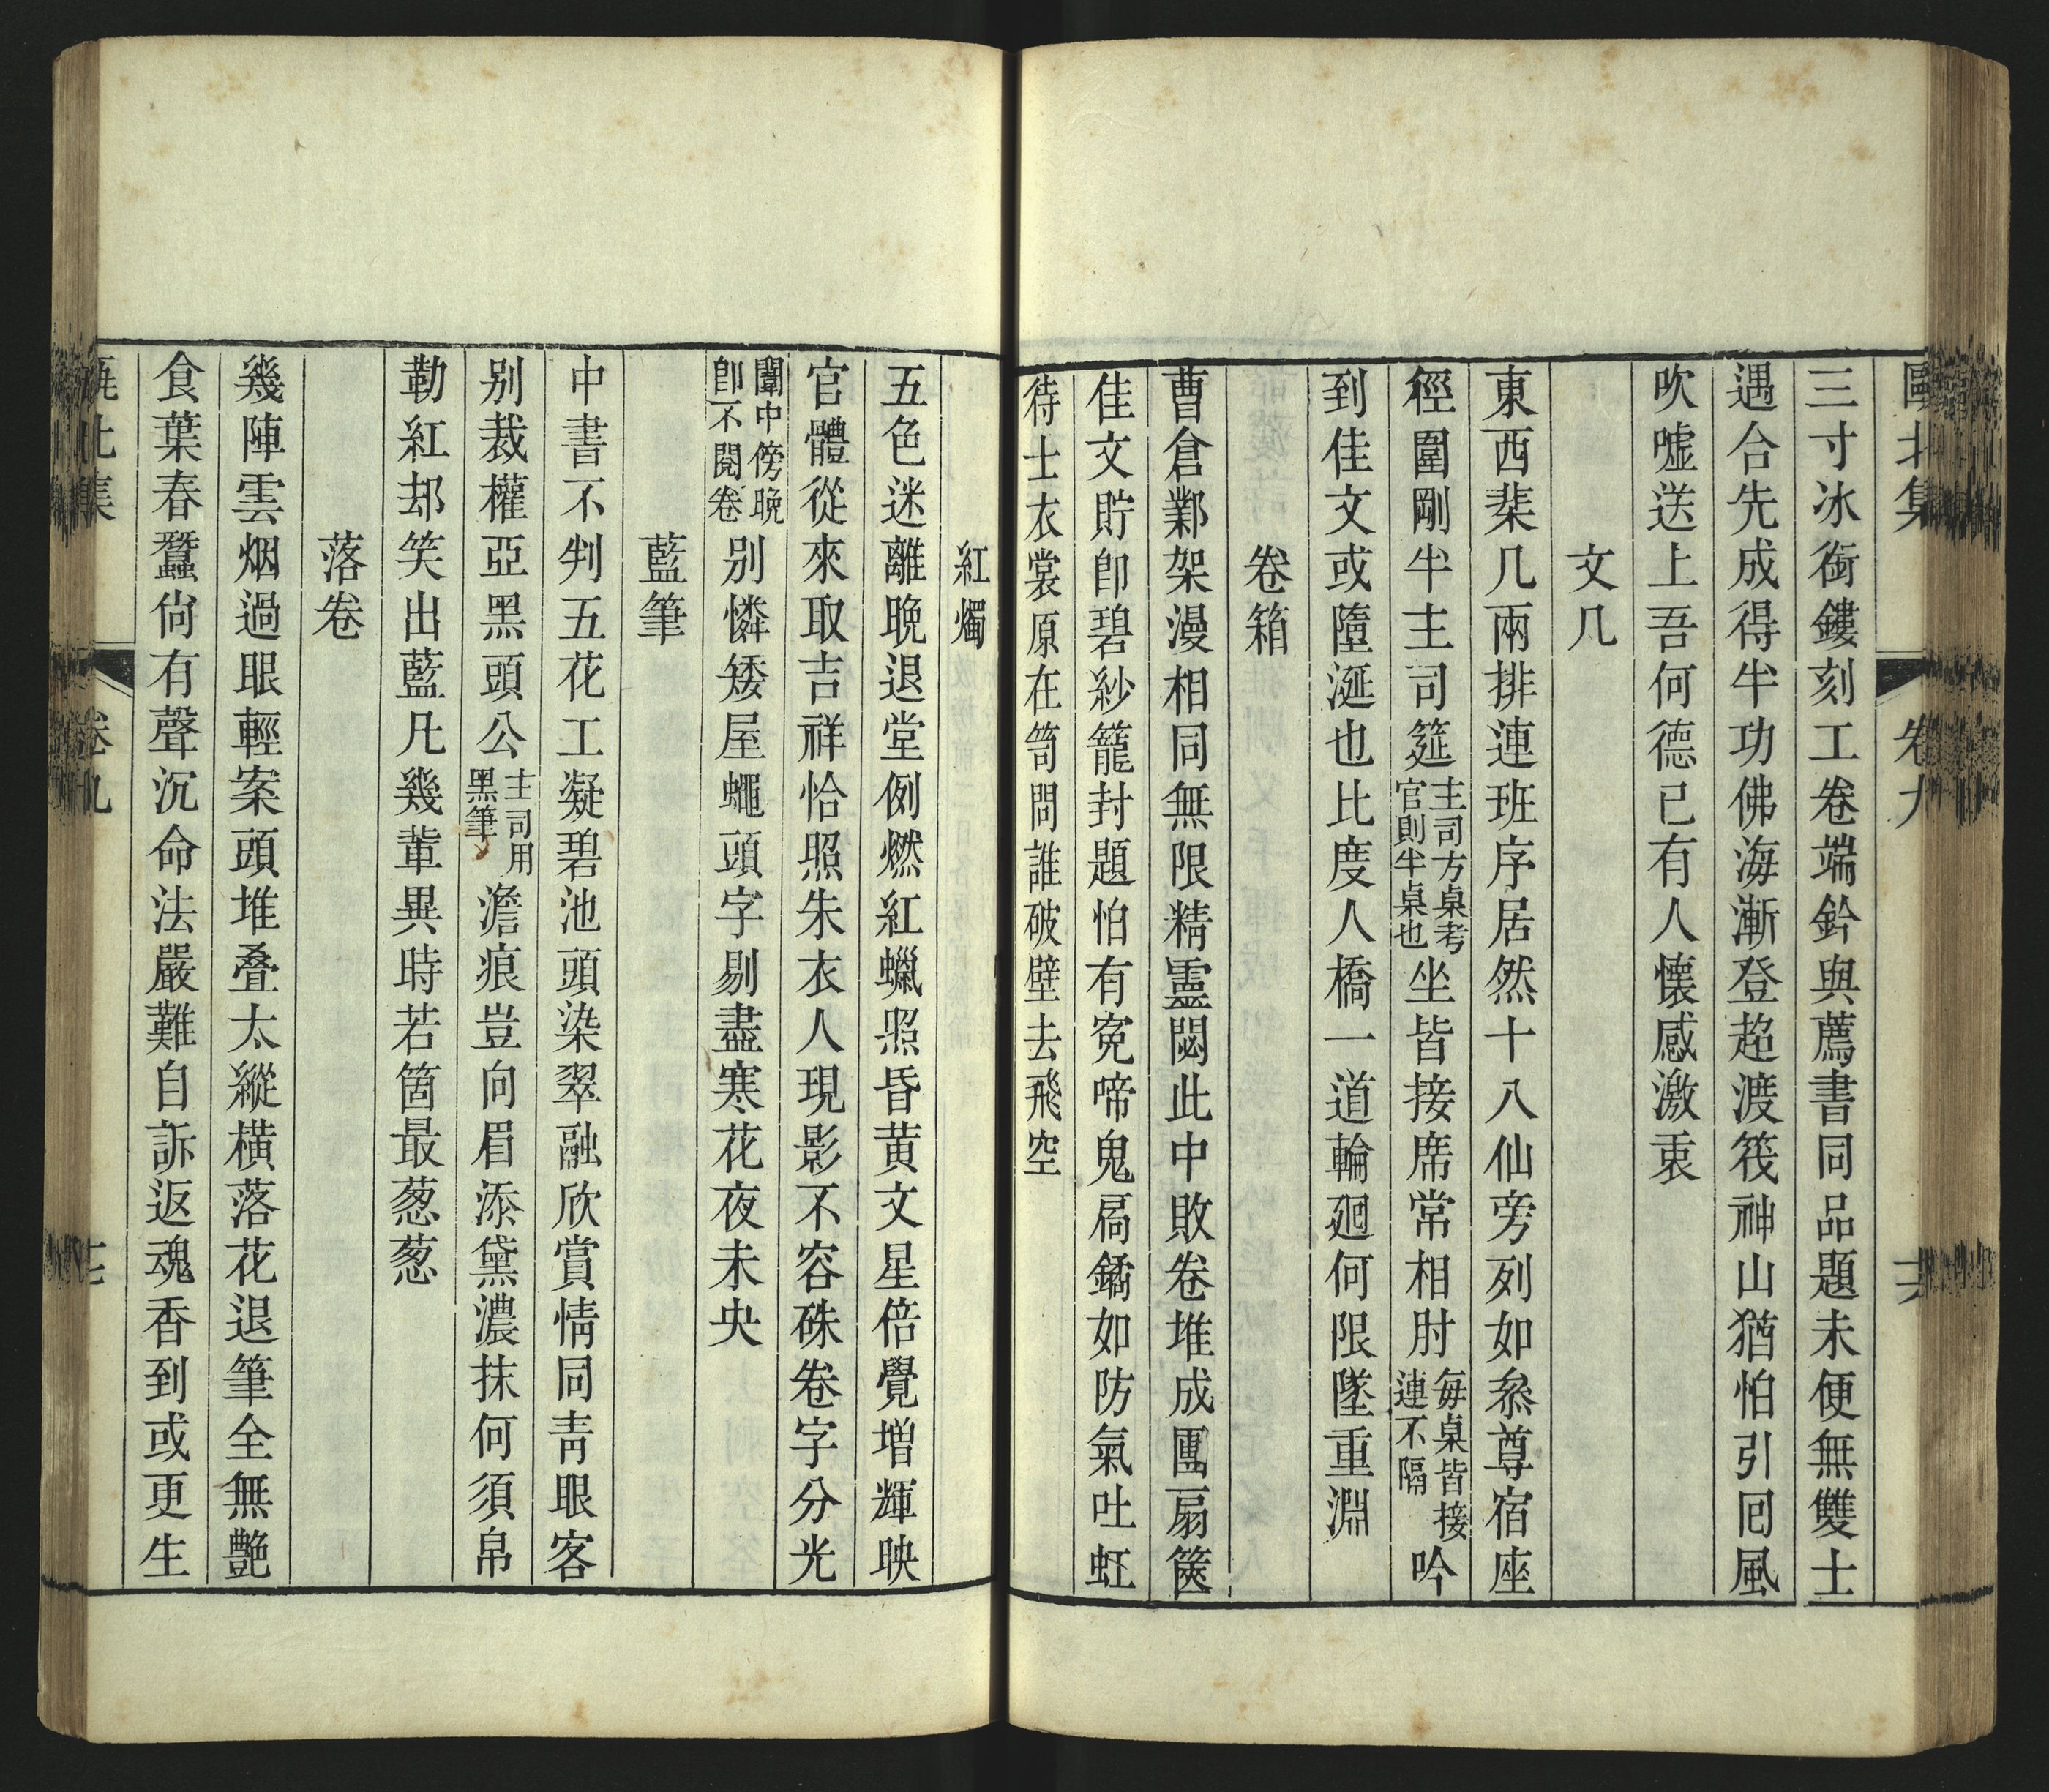 甌北集 卷九 十六
三寸冰銜鏤刻工卷端鈐與薦書同品題未便無雙士
遇合先成得半功佛海漸登超渡筏神山猶怕引囘風
吹嘘送上吾何德已有人懷感激衷
文几
東西棐几兩排連班序居然十八仙旁列如叅尊宿座
徑圍剛半主司筵主司方桌考官則半桌也坐皆接席常相肘每桌皆接連不隔吟
到佳文或墮涎也比度人橋一道輪廻何限墜重淵
卷箱
曹倉鄴架漫相同無限精靈閟此中敗卷堆成團扇篋
佳文貯卽碧紗籠封題怕有寃啼鬼扃鐍如防氣吐虹
待士衣裳原在笥問誰破壁去飛空
紅燭
五色迷離晚退堂例燃紅蠟照昏黄文星倍覺增輝映
官體從來取吉祥恰照朱衣人現影不容硃卷字分光
闈中傍晚卽不閱卷别憐矮屋蠅頭字剔盡寒花夜未央
藍筆
中書不判五花工凝碧池頭染翠融欣賞情同靑眼客
别裁權亞黑頭公主司用黑筆澹痕豈向眉添黛濃抹何須帛
勒紅却笑出藍凡幾輩異時若箇最葱葱
落卷
幾陣雲烟過眼輕案頭堆叠太縱橫落花退筆全無艷
食葉春蠶尙有聲沉命法嚴難自訴返魂香到或更生
甌北集 卷九 十七